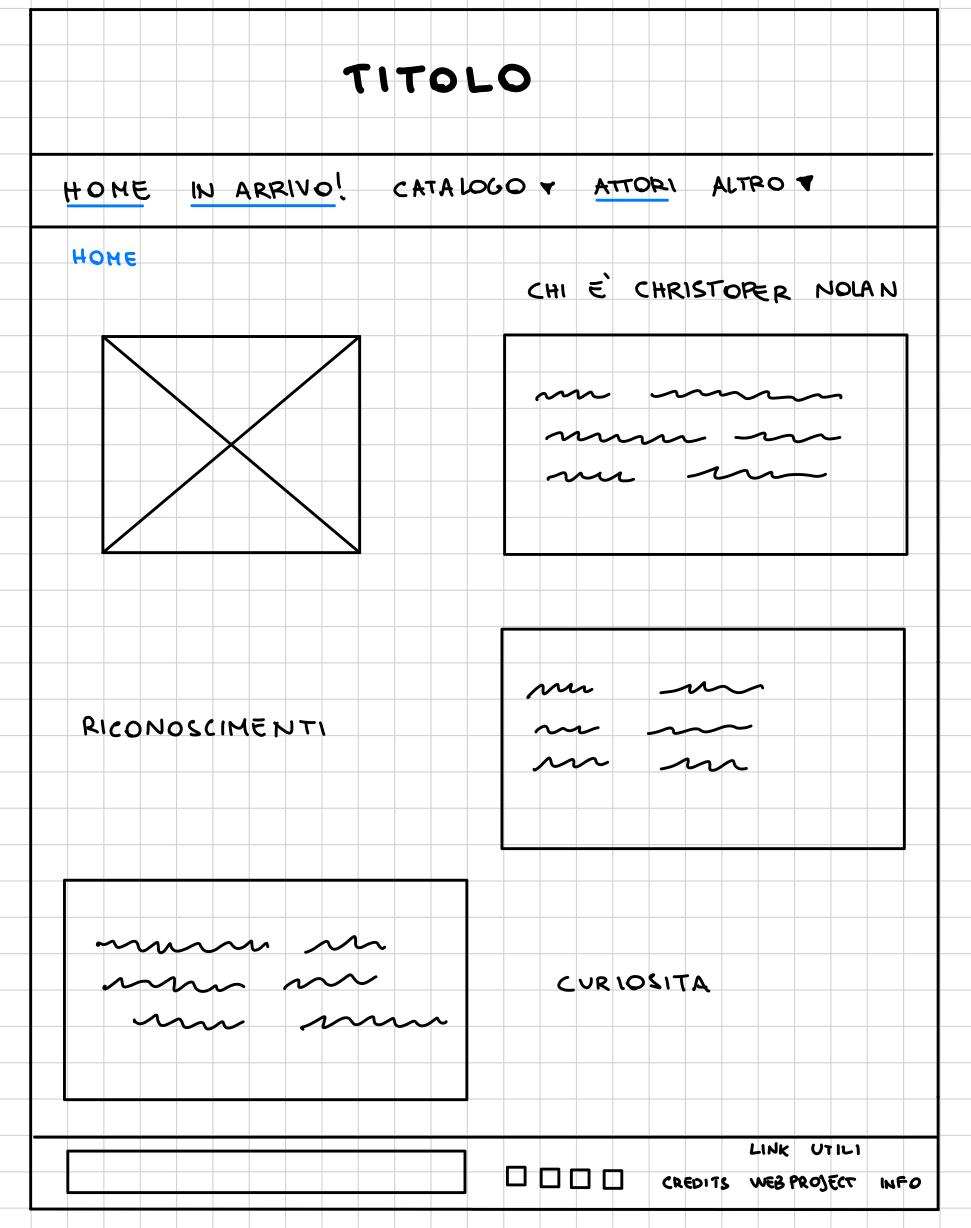 TITOLO
HOME IN ARRIVO! CATALOGO ▼ ATTORI ALTRO ▼
HOME
CHI E' CHRISTOPER NOLAN
RICONOSCIMENTI
CURIOSITA
LINK UTILI
CREDITS WEB PROJECT INFO